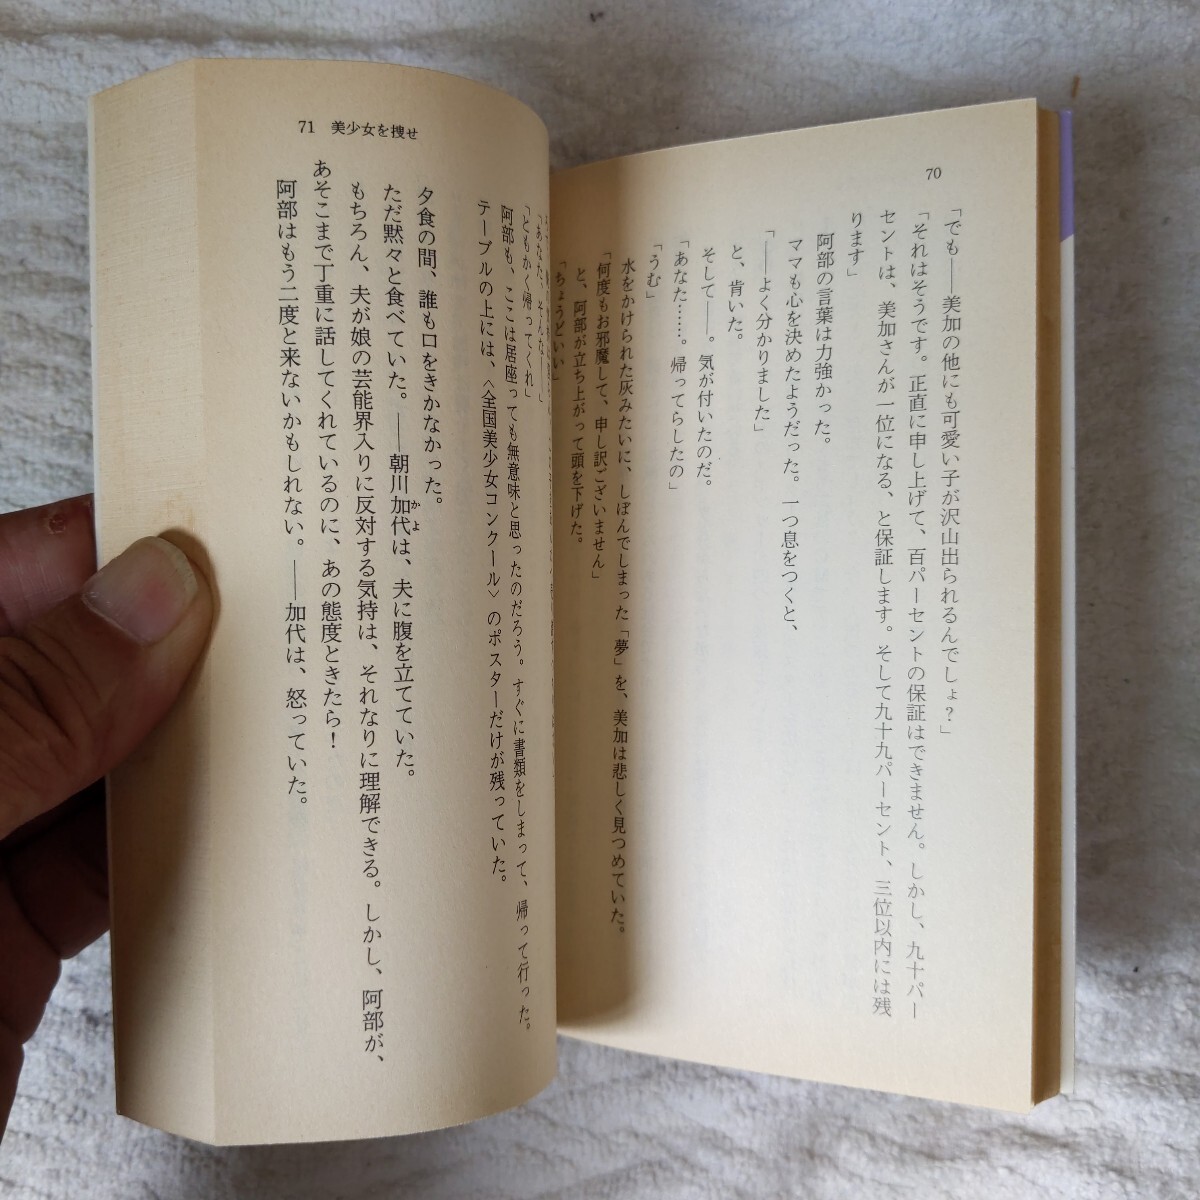 70
「でも――美加の他にも可愛い子が沢山出られるんでしょ？」
「それはそうです。正直に申し上げて、百パーセントの保証はできません。しかし、九十パー
セントは、美加さんが一位になる、と保証します。そして九十九パーセント、三位以内には残
ります」
阿部の言葉は力強かった。
ママも心を決めたようだった。一つ息をつくと、
「――よく分かりました」
と、肯いた。
そして――。気が付いたのだ。
「あなた……。帰ってらしたの」
「うむ」
水をかけられた灰みたいに、しぼんでしまった「夢」を、美加は悲しく見つめていた。
「何度もお邪魔して、申し訳ございません」
と、阿部が立ち上がって頭を下げた。
「ちょうどいい」
71 美少女を捜せ
「あなた、そんな――」
「ともかく帰ってくれ」
阿部も、ここは居座っても無意味と思ったのだろう。すぐに書類をしまって、帰って行った。
テーブルの上には、〈全国美少女コンクール〉のポスターだけが残っていた。
夕食の間、誰も口をきかなかった。
ただ黙々と食べていた。――朝川加代は、夫に腹を立てていた。
かよ
もちろん、夫が娘の芸能界入りに反対する気持は、それなりに理解できる。しかし、阿部が、
あそこまで丁重に話してくれているのに、あの態度ときたら！
阿部はもう二度と来ないかもしれない。――加代は、怒っていた。